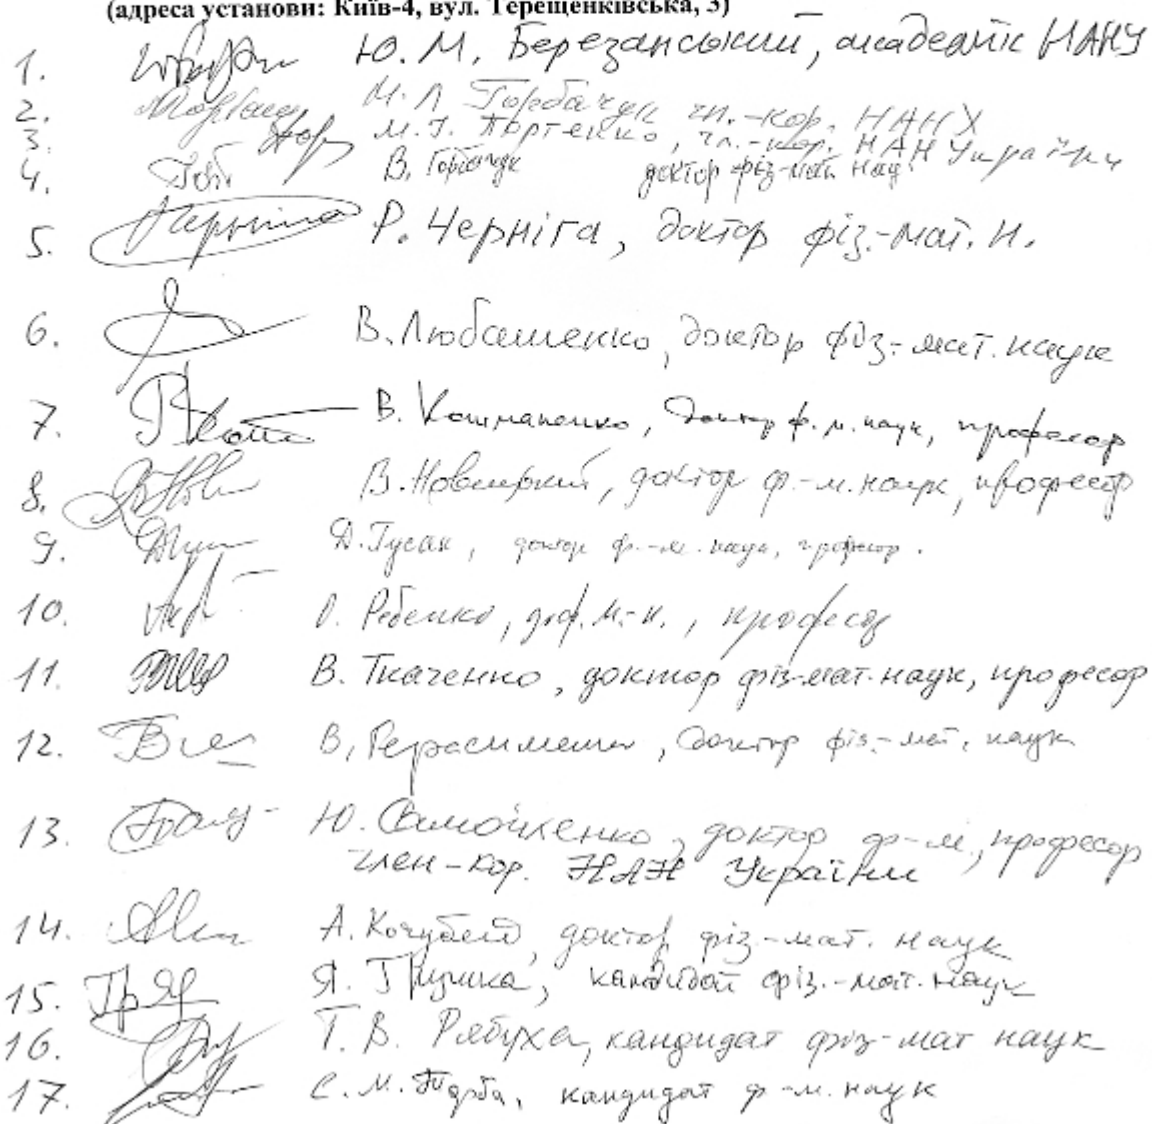 (адреса установи: Київ-4, вул. Терещенківська, 3)
1. Ю. М. Березанський, академік НАНУ
2. М. Л. Горбачук чл.-кор. НАНУ
3. М. І. Портенко, чл.-кор. НАН України
4. В. Горбачук доктор фіз-мат наук
5. Р. Черніга, доктор фіз.-мат. н.
6. В. Любашенко, доктор фіз.-мат. наук
7. В. Кошманенко, доктор ф. м. наук, професор
8. В. Новицький, доктор ф.-м. наук, професор
9. Д. Гусак, доктор ф.-м. наук, професор.
10. Ребенко, д.ф.м.-н., професор
11. В. Ткаченко, доктор фіз-мат. наук, професор
12. В. Герасименко, доктор фіз.-мат. наук
13. Ю. Самойленко, доктор ф-м., професор
член-кор. НАН України
14. А. Кочубей, доктор фіз-мат. наук
15. Я. Грушка, кандидат фіз.-мат. наук
16. Т. В. Рябуха, кандидат фіз-мат наук
17. С. М. Торба, кандидат ф-м. наук